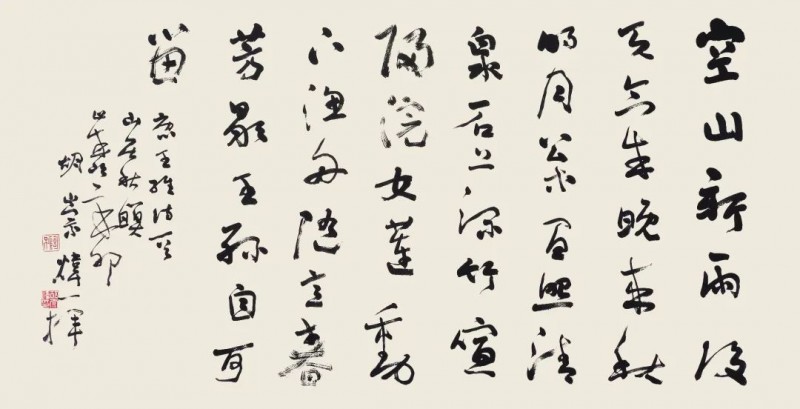 空山新雨後
天氣晚來秋
明月松間照清
泉石上流竹喧
歸浣女蓮動
下漁舟隨意春
芳歇王孫自可
留
王維詩
山居秋暝
崇煒一揮